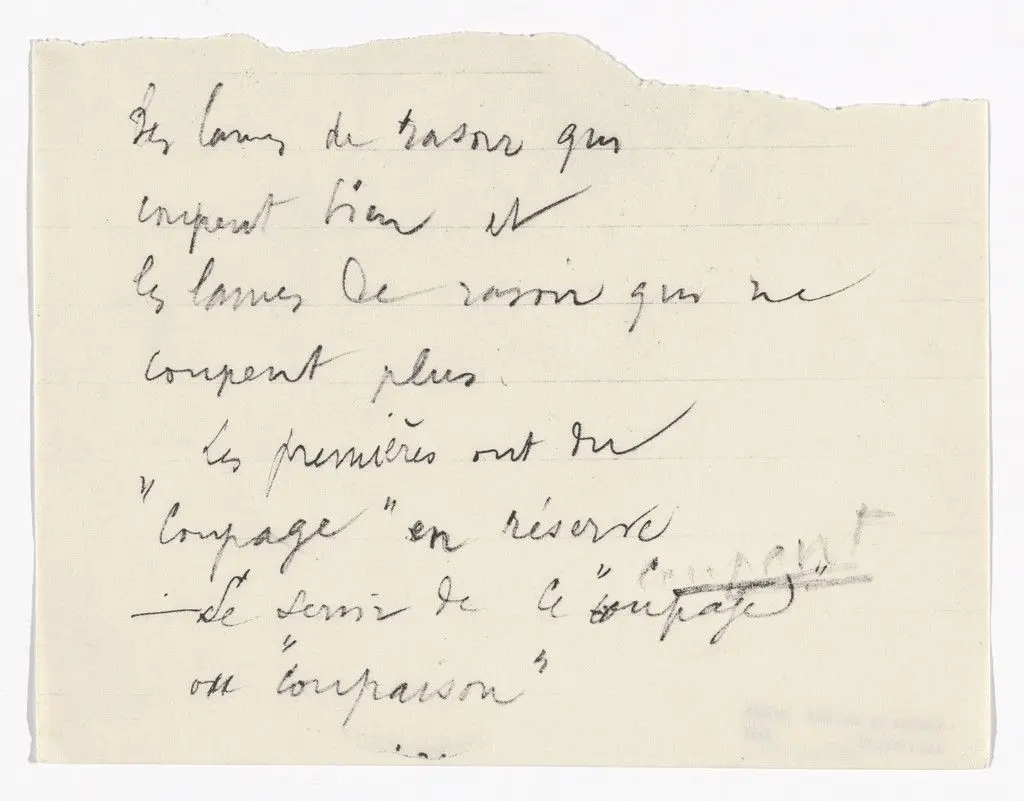 Des lames de rasoir qui
coupent bien et
les lames de rasoir qui ne
coupent plus.
Les premières ont du
"Coupage" en réserve
coupent
— Se servir de ce "coupage"
ou "coupaison"
...